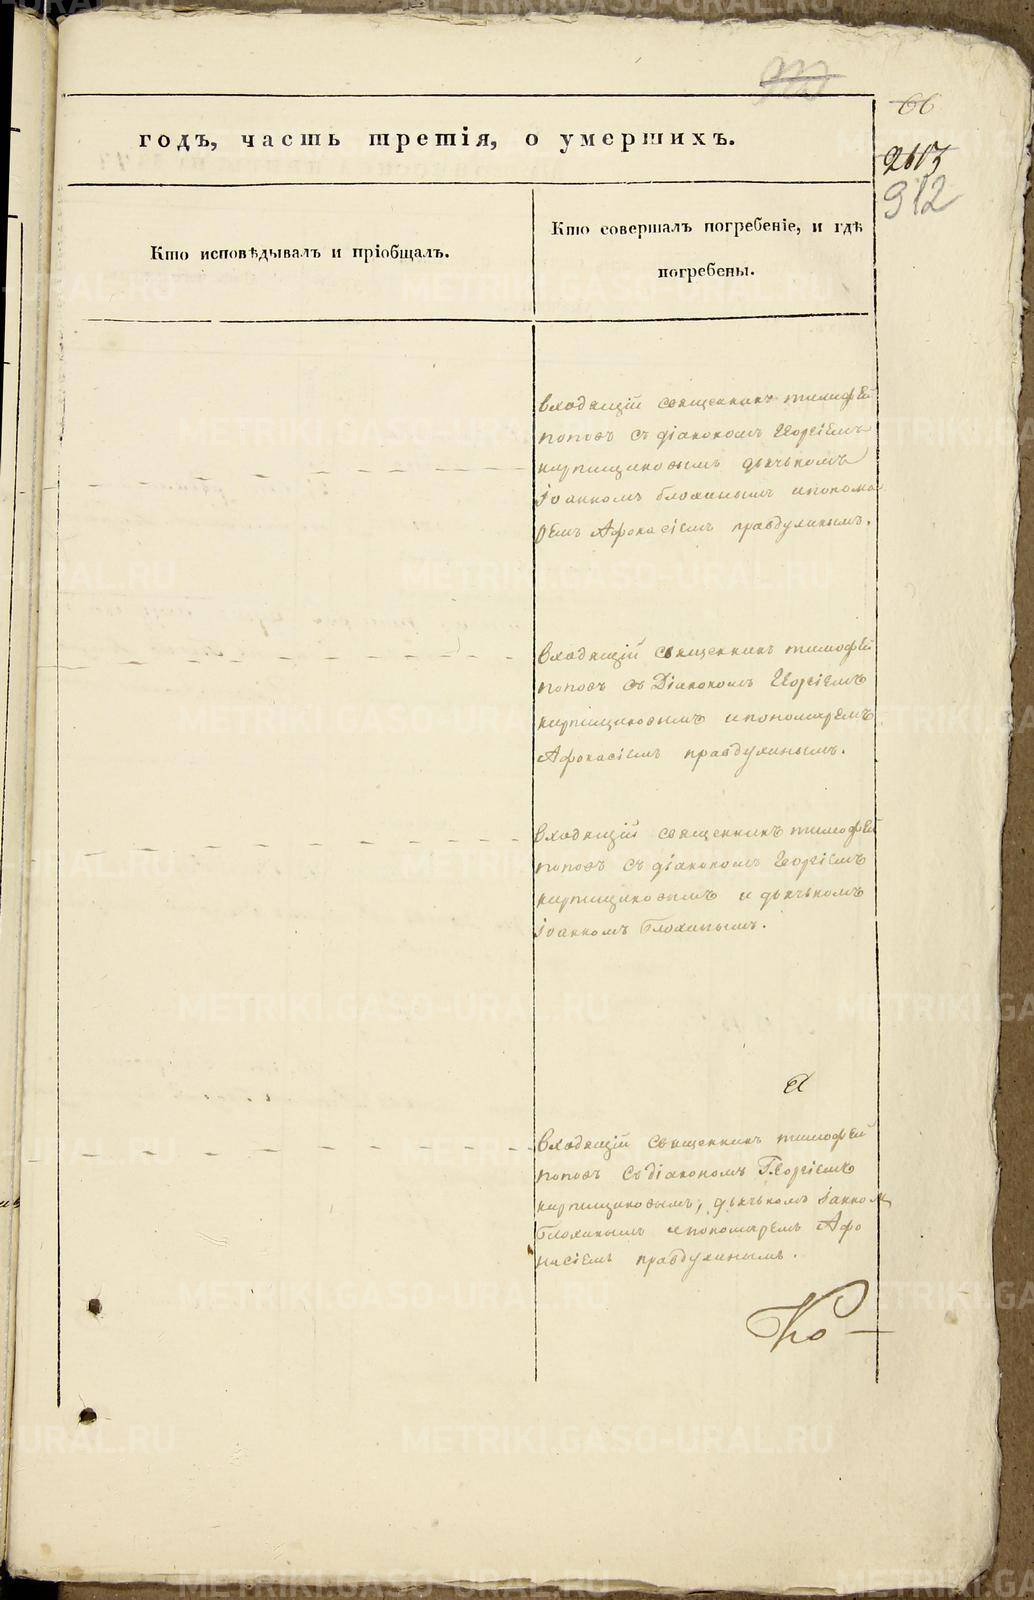 66
2613
912
годъ, часть третія, о умершихъ.
Кто исповѣдывалъ и пріобщалъ.
Кто совершалъ погребеніе, и гдѣ
погребены.
входящій священникъ тимофей
поповъ съ діакономъ Георгіемъ
кирпищиковымъ дьячькомъ
Іоанномъ блохинымъ ипонома
ремъ Афонасіемъ правдухинымъ.
входящій священникъ тимофей
поповъ съ Діякономъ Георгіемъ
кирпищиковымъ ипономаремъ
Афонасіемъ правдухинымъ.
входящій священникъ тимофей
поповъ съ діакономъ Георгіемъ
кирпищиковымъ и дьячькомъ
Іоанномъ Блохинымъ.
входящій священникъ тимофей
поповъ съ діакономъ Георгіемъ
кирпищиковымъ, дьячькомъ Іанном
блохинымъ ипономаремъ Афо
насіемъ правдухинымъ.
Ко-
METRIKI.GASO-URAL.RU